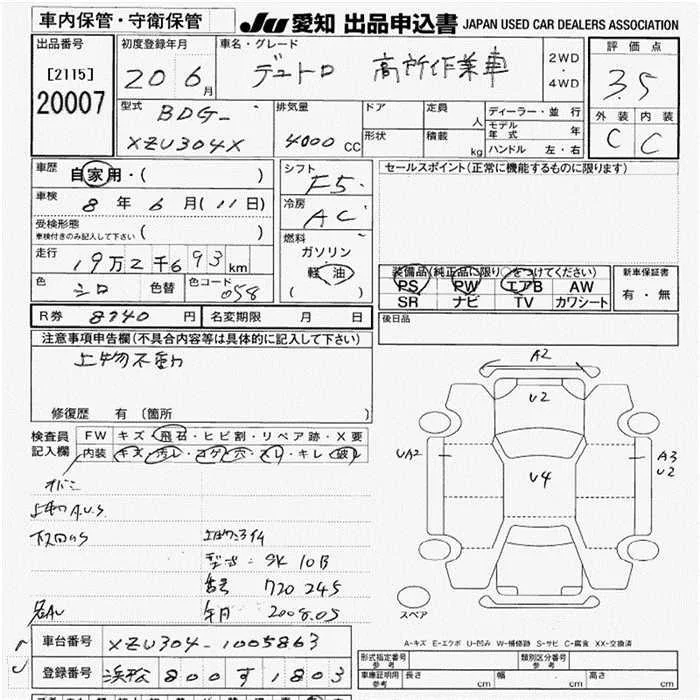 車内保管・守衛保管
JU 愛知 出品申込書 JAPAN USED CAR DEALERS ASSOCIATION
出品番号
[2115]
20007
初度登録年月
20 6月
車名・グレード
デュトロ 高所作業車
2WD・4WD
評価点
3.5
外装 内装
C C
型式
BDG-
XZU304X
排気量
4000 CC
ドア
形状
定員
人
積載
kg
ディーラー・並行
モデル年式 年
ハンドル 左・右
車歴
自家用・( )
車検
8年 6月(11日)
受検形態
車検付きのみ記入して下さい ( )
走行
19万2千693km
色
シロ
色替
色コード
058
シフト
F5
冷房
AC
燃料
ガソリン
軽油
( )
セールスポイント(正常に機能するものに限ります)
装備品(純正品に限り○をつけてください)
PS PW エアB AW
SR ナビ TV カワシート
新車保証書
有・無
R券 8740円
名変期限 月 日
後日品
注意事項申告欄(不具合内容等は具体的に記入して下さい)
上物不動
修復歴 有 〔箇所 〕
検査員記入欄
FW キズ・飛石・ヒビ割・リペア跡・X要
内装 キズ・汚レ・コゲ・穴・スレ・キレ・破レ
下回りUS
型式 SK10B
番号 720245
年月 2008.05
A2
U2
UA2
U4
A3
U2
スペア
A-キズ E-エクボ U-凹み W-補修跡 S-サビ C-腐食 XX-交換済
車台番号 XZU304-1005863
登録番号 浜松 800 す 1803
型式指定番号 参考
類別区分番号 参考
車庫証明用 参考
長さ cm 幅 cm 高さ cm